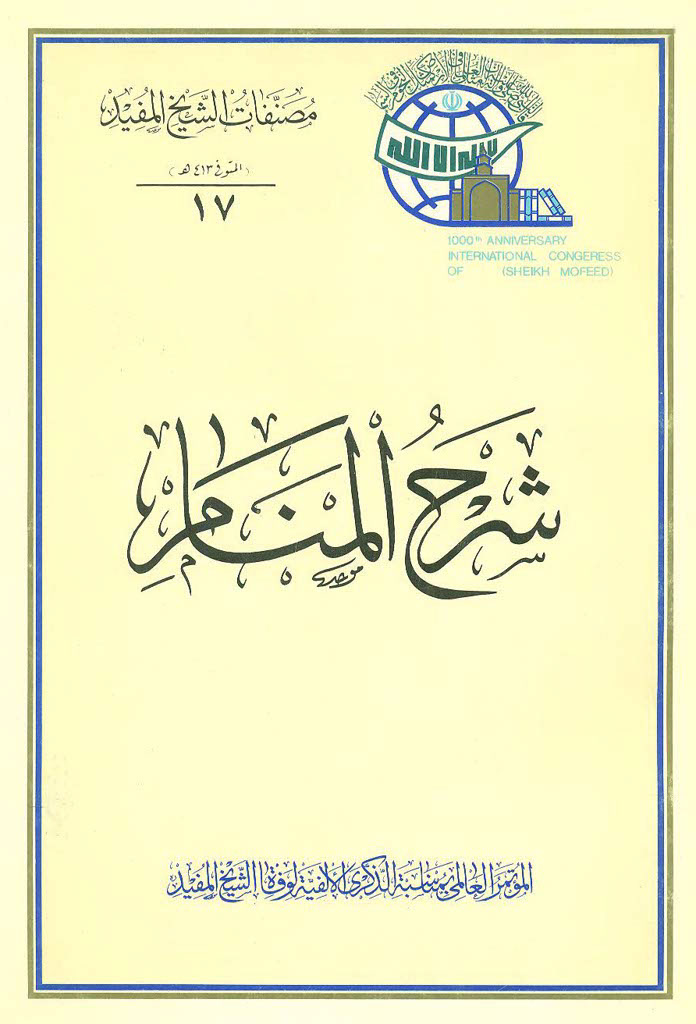 مُصَنَّفَاتُ الشَّيْخِ المُفِيْد
(المتوفى ٤١٣ هـ)
١٧
لا إله إلا الله
1000th ANNIVERSARY
INTERNATIONAL CONGERESS
OF (SHEIKH MOFEED)
شَرْحُ الْمَنَامِ
المؤتمر العالمي بمناسبة الذكرى الألفية لوفاة الشيخ المفيد